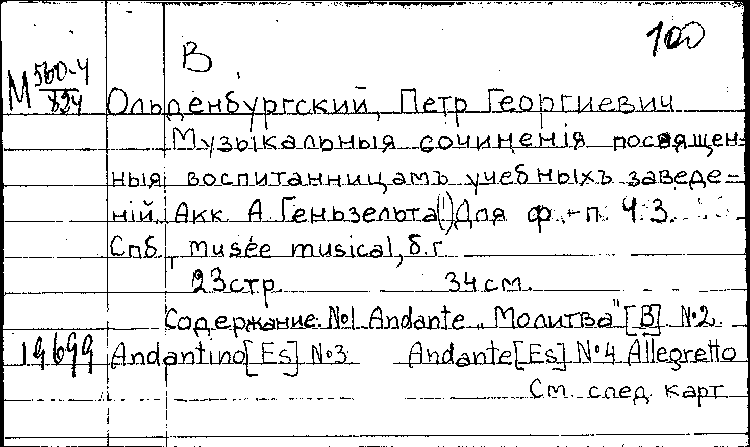 В 100
М 560-4
894
Ольденбургский, Петр Георгиевич
Музыкальныя сочиненія посвящен-
ныя воспитанницамъ учебныхъ заведе-
ній. Акк. А. Геньзельта(!) Для ф.-п. Ч. 3.
Спб., Musée musical, б.г.
23 стр. 34 см.
Содержание: №1 Andante „Молитва" [B] №2
19699 Andantino [Es] №3 Andante [Es] №4 Allegretto
См. след. карт.